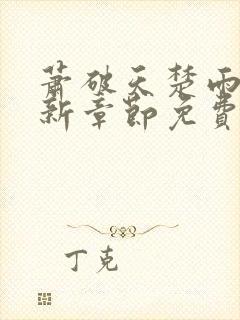 萧破天楚雨
新章节免费
丁克